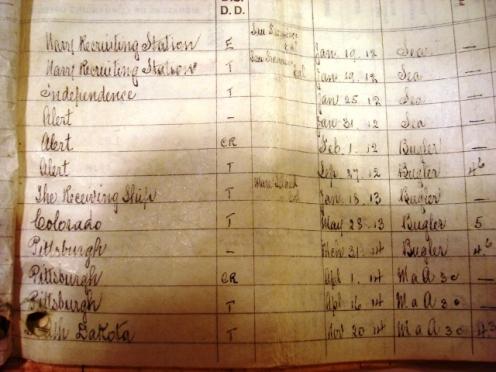 D.D.
Navy Recruiting Station E San Francisco Cal Jan 19. 12 Sea —
Navy Recruiting Station T San Francisco Cal Jan 19. 12 Sea —
Independence T Jan 25. 12 Sea —
Alert — Jan 31. 12 Sea —
Alert CR Feb. 1. 12 Bugler —
Alert T Sep. 12 Bugler
The Receiving Ship T Mare Island Cal Jan. 13 Bugler —
Colorado T May 28. 13 Bugler 5
Pittsburgh — 31. 14 Bugler
Pittsburgh CR Apl. 1. 14 M a A 3 c —
Pittsburgh T Apl. 16. 14 M a A 3 c
Dakota T Nov 20 14 M a A 3 c